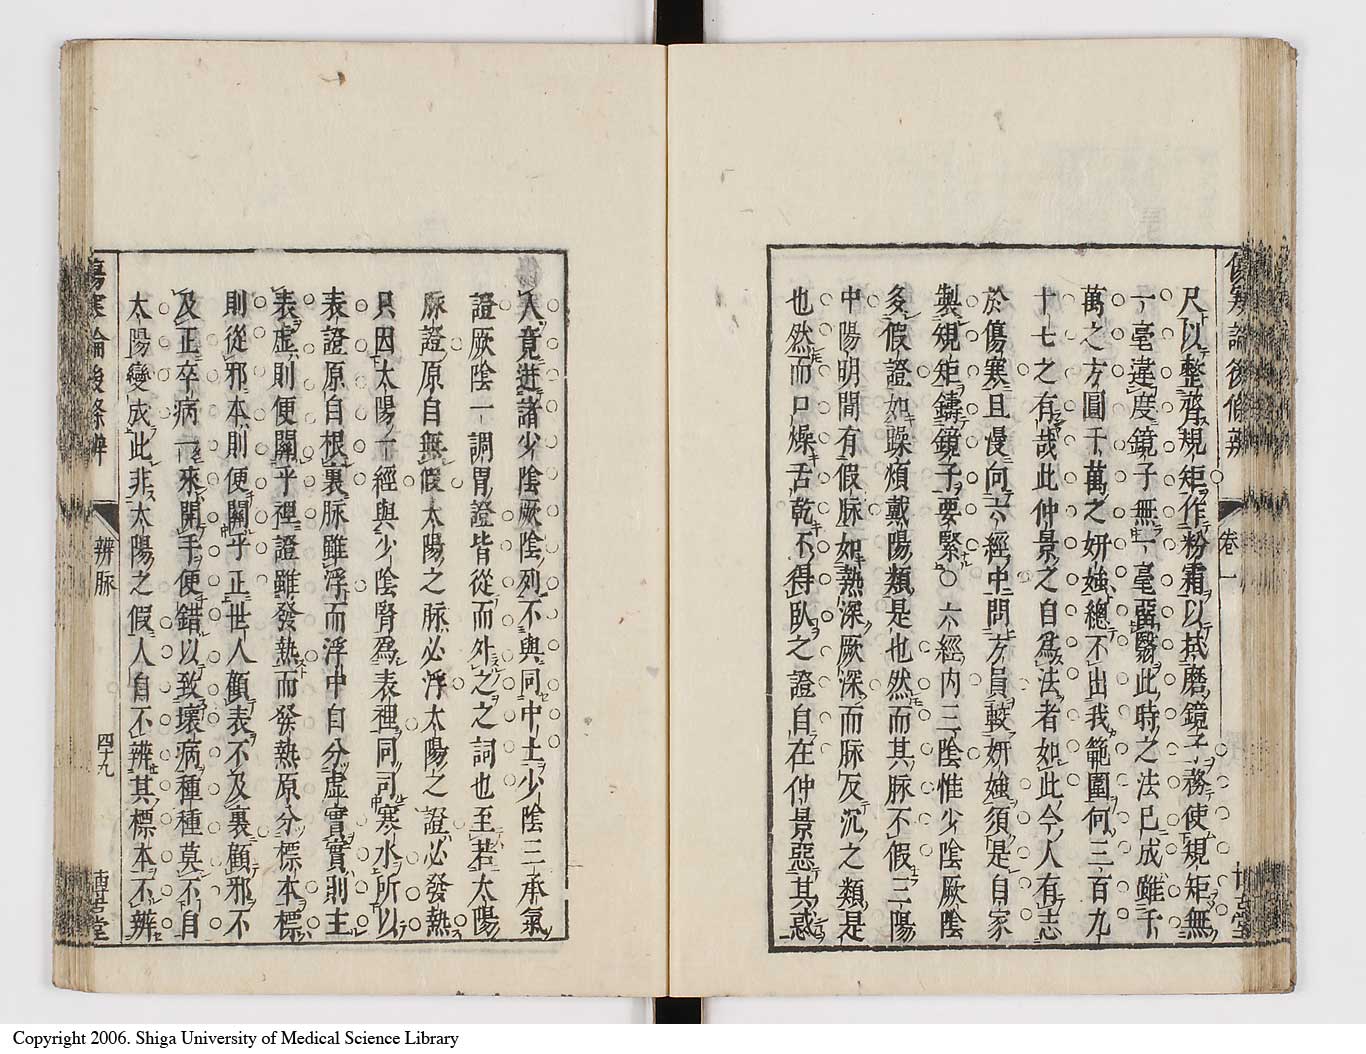 傷寒論後條辨
卷一
博古堂
尺以整齊規矩作粉霜以拭磨鏡子務使規矩無
一毫違度鏡子無一毫翳此時之法已成雖千
萬之方圓千萬之妍媸總不出我範圍何三百九
十七之有哉此仲景之自爲法者如此今人有志
於傷寒且慢向六經中問方員較妍媸須是自家
製規矩鑄鏡子要緊○六經内三陰惟少陰厥陰
多假證如躁煩戴陽類是也然而其脈不假三陽
中陽明間有假脈如熱深厥深而脈反沉之類是
也然而口燥舌乾不得臥之證自在仲景惡其惑
人竟進諸少陰厥陰列不與同中土少陰三承氣
證厥陰一調胃證皆從而外之之詞也至若太陽
脈證原自無假太陽之脈必浮太陽之證必發熱
只因太陽一經與少陰腎爲表裡同司寒水所以
表證原自根裏脈雖浮而浮中自分虛實實則主
表虛則便關乎裡證雖發熱而發熱原分標本標
則從邪本則便關乎正世人顧表不及裏顧邪不
及正卒病一來開手便錯以致壞病種種莫不自
太陽變成此非太陽之假人自不辨其標本不辨
傷寒論後條辨
辨脈
四十九
博古堂
Copyright 2006. Shiga University of Medical Science Library